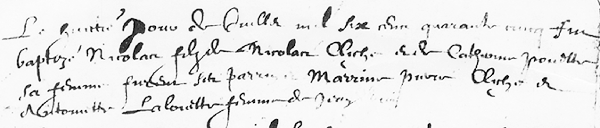 Le huictie Jour de Juillet mil six cens quarante cinq fut
baptizé Nicolas filz de Nicolas Cliche et de Catherine Poulette
sa femme furent ses parrin Marrine pierre Cliche et
Antoinette Lalouette femme de Jean